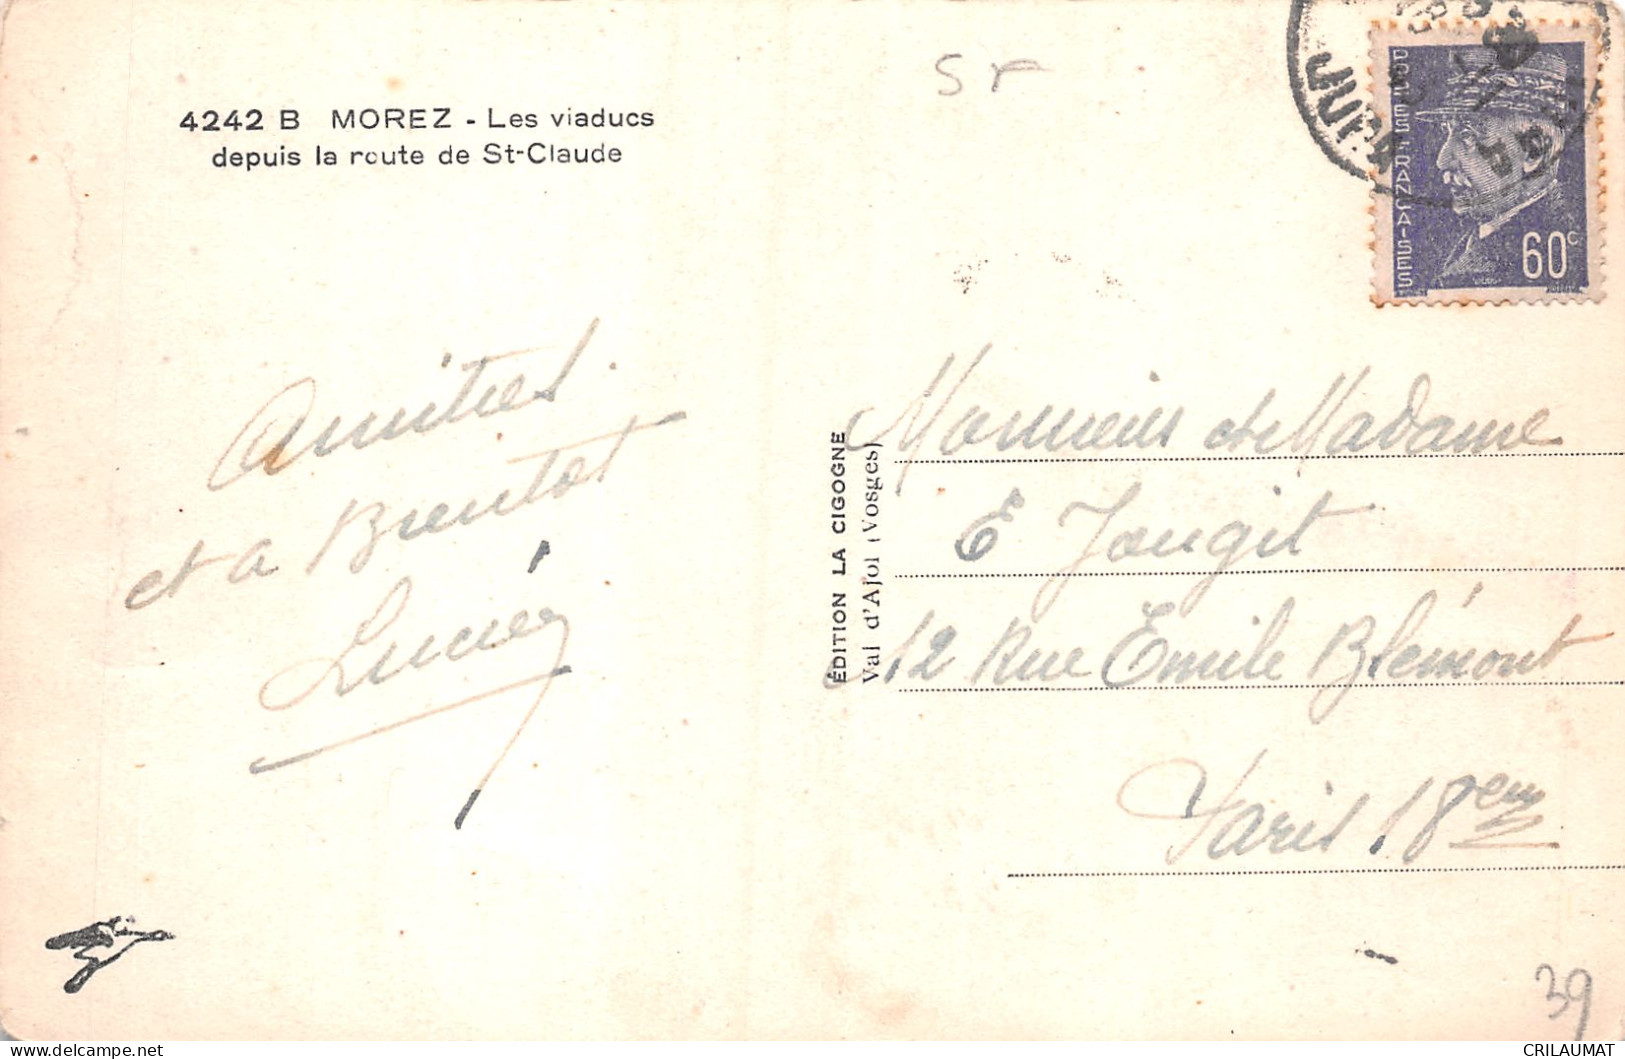 4242 B MOREZ - Les viaducs
depuis la route de St-Claude
ST
JURA
POSTES FRANÇAISES
60c
Amitiés
et a Brentot
Lucien
ÉDITION LA CIGOGNE
Val d'Ajol (Vosges)
Monsieur et Madame
E Jougit
12 Rue Emile Blémont
Paris 18em
39
delcampe.net
CRILAUMAT